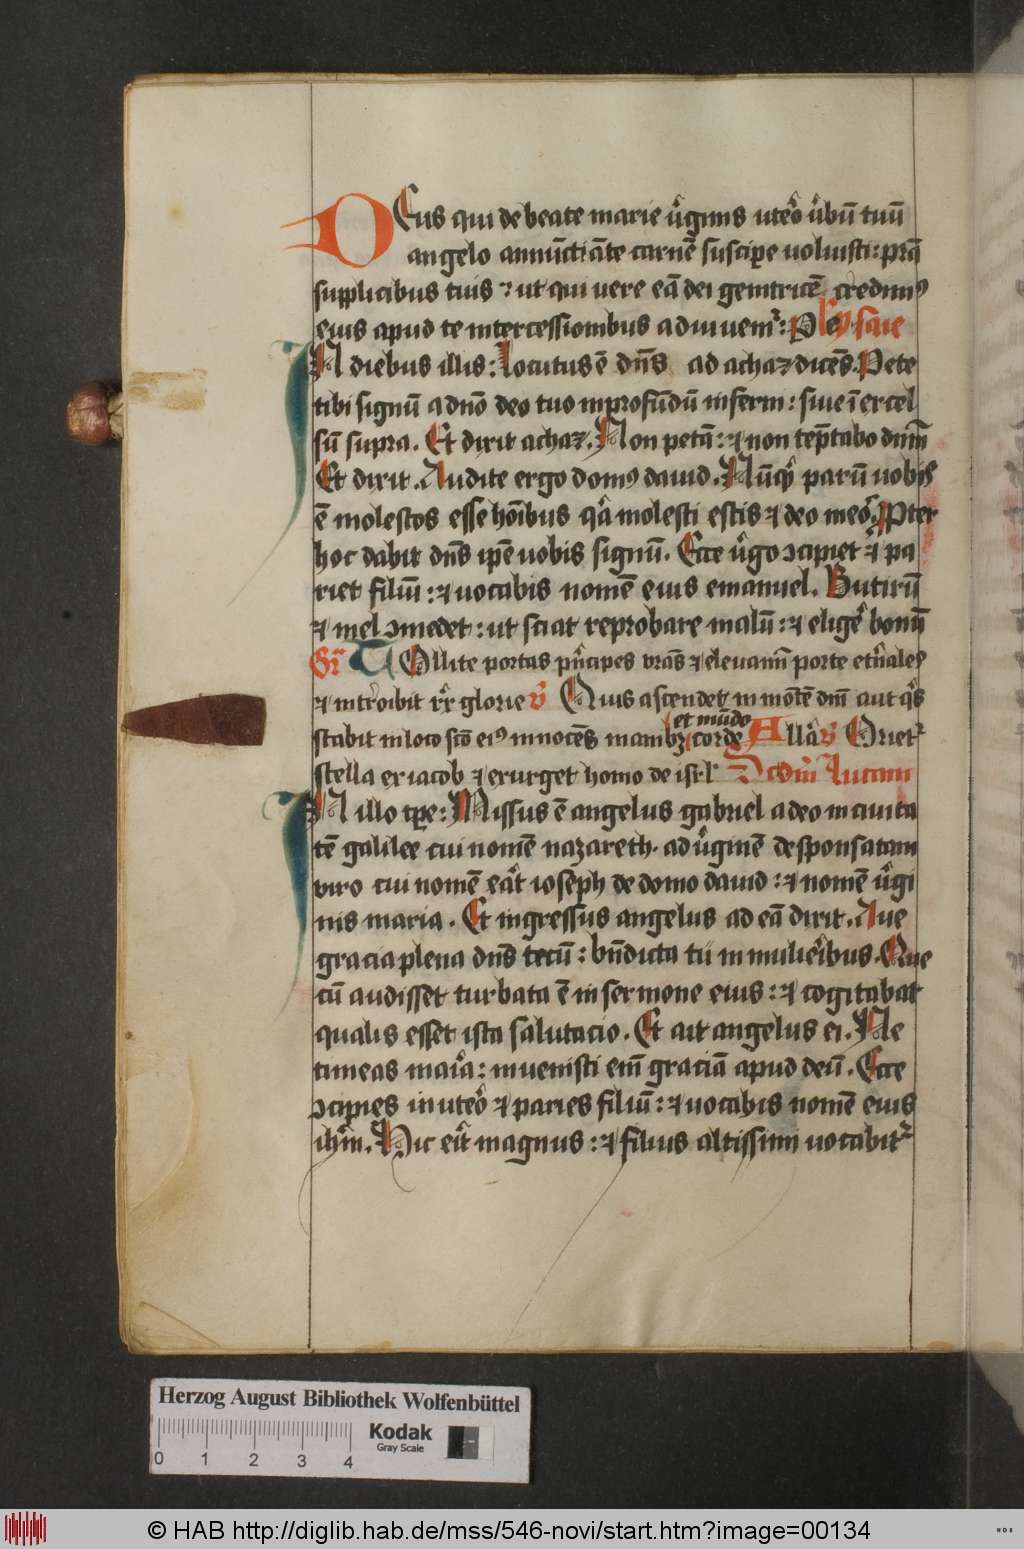 DEus qui de beate marie v̓ginis utero̓ v̓bū tuū
angelo annūctiāte carnē suscipe uoluisti: prā
supplicibus tuis ⁊ ut qui uere eā dei genitricē credimꝰ
eius apud te intercessionibus adiuuemr̉: P ysaie
IN diebus illis: Locutus ē dn̄s ad achaz dicēs. Pete
tibi signū a dn̄o deo tuo in profūdū inferni: siue ī excel
sū supra. Et dixit achaz. Non petā: ⁊ non tēptabo dnm̄
Et dixit. Audite ergo domꝰ dauid. Nūq̓ parū uobis
ē molestos esse hoı̄bus q̓a molesti estis ⁊ deo meo̓. Pter
hoc dabit dn̄s ipē uobis signū. Ecce v̓go ɔcipiet ⁊ pa
riet filiū: ⁊ uocabis nomē eius emanuel. Butirū
⁊ mel ɔmedet: ut sciat reprobare malū: ⁊ elige̓ bonū
Gr̄ TOllite portas pn̓cipes vrās ⁊ eleuamı̄ porte etn̓ales
⁊ intro̓ibit rx̄ glorie v̓ Quis ascendet in mōtē dnı̄ aut q̓s
stabit in loco scō eiꝰ innocēs manibꝫ et mūdo corde Alla̓ v̓ Orietr̉
stella ex iacob ⁊ exurget homo de isrl̄ Scdm̄ lucam
IN illo tpe: Missus ē angelus gabriel a deo in ciuita
tē galilee cui nomē nazareth. ad v̓ginē desponsatam
viro cui nomē eāt ioseph de domo dauid: ⁊ nomē v̓gi
nis maria. Et ingressus angelus ad eā dixit. Aue
gracia plena dn̄s tecū: bn̄dicta tu in mulie̓ibus. Que
cū audisset turbata ē in sermone eius: ⁊ cogitabat
qualis esset ista salutacio. Et ait angelus ei. Ne
timeas mai̓a: inuenisti em̄ graciā apud deū. Ecce
ɔcipies in uteo̓ ⁊ paries filiū: ⁊ uocabis nomē eius
ihm̄. Hic ei̓t magnus: ⁊ filius altissimi uocabitr̉
Herzog August Bibliothek Wolfenbüttel
Kodak
Gray Scale
0 1 2 3 4
© HAB http://diglib.hab.de/mss/546-novi/start.htm?image=00134